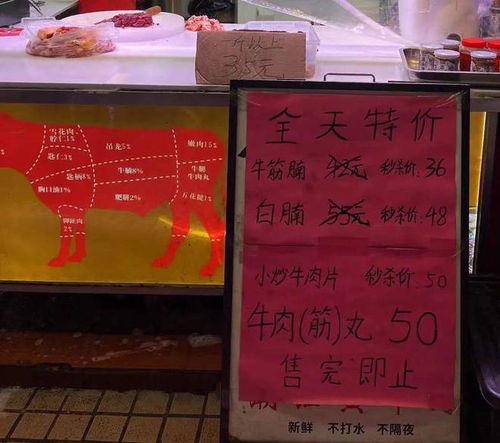 一斤以上
35元
雪花肉
脖仁1%
匙仁3%
匙柄8%
胸口油1%
吊龙5%
牛腩8%
肥胼2%
嫩肉15%
牛腿
牛肉丸
五花趾1%
脚趾肉
2%
全天特价
牛筋腩 42元 秒杀价:36
白腩 55元 秒杀价:48
小炒牛肉片 秒杀价:50
牛肉(筋)丸 50
售完即止
新鲜 不打水 不隔夜